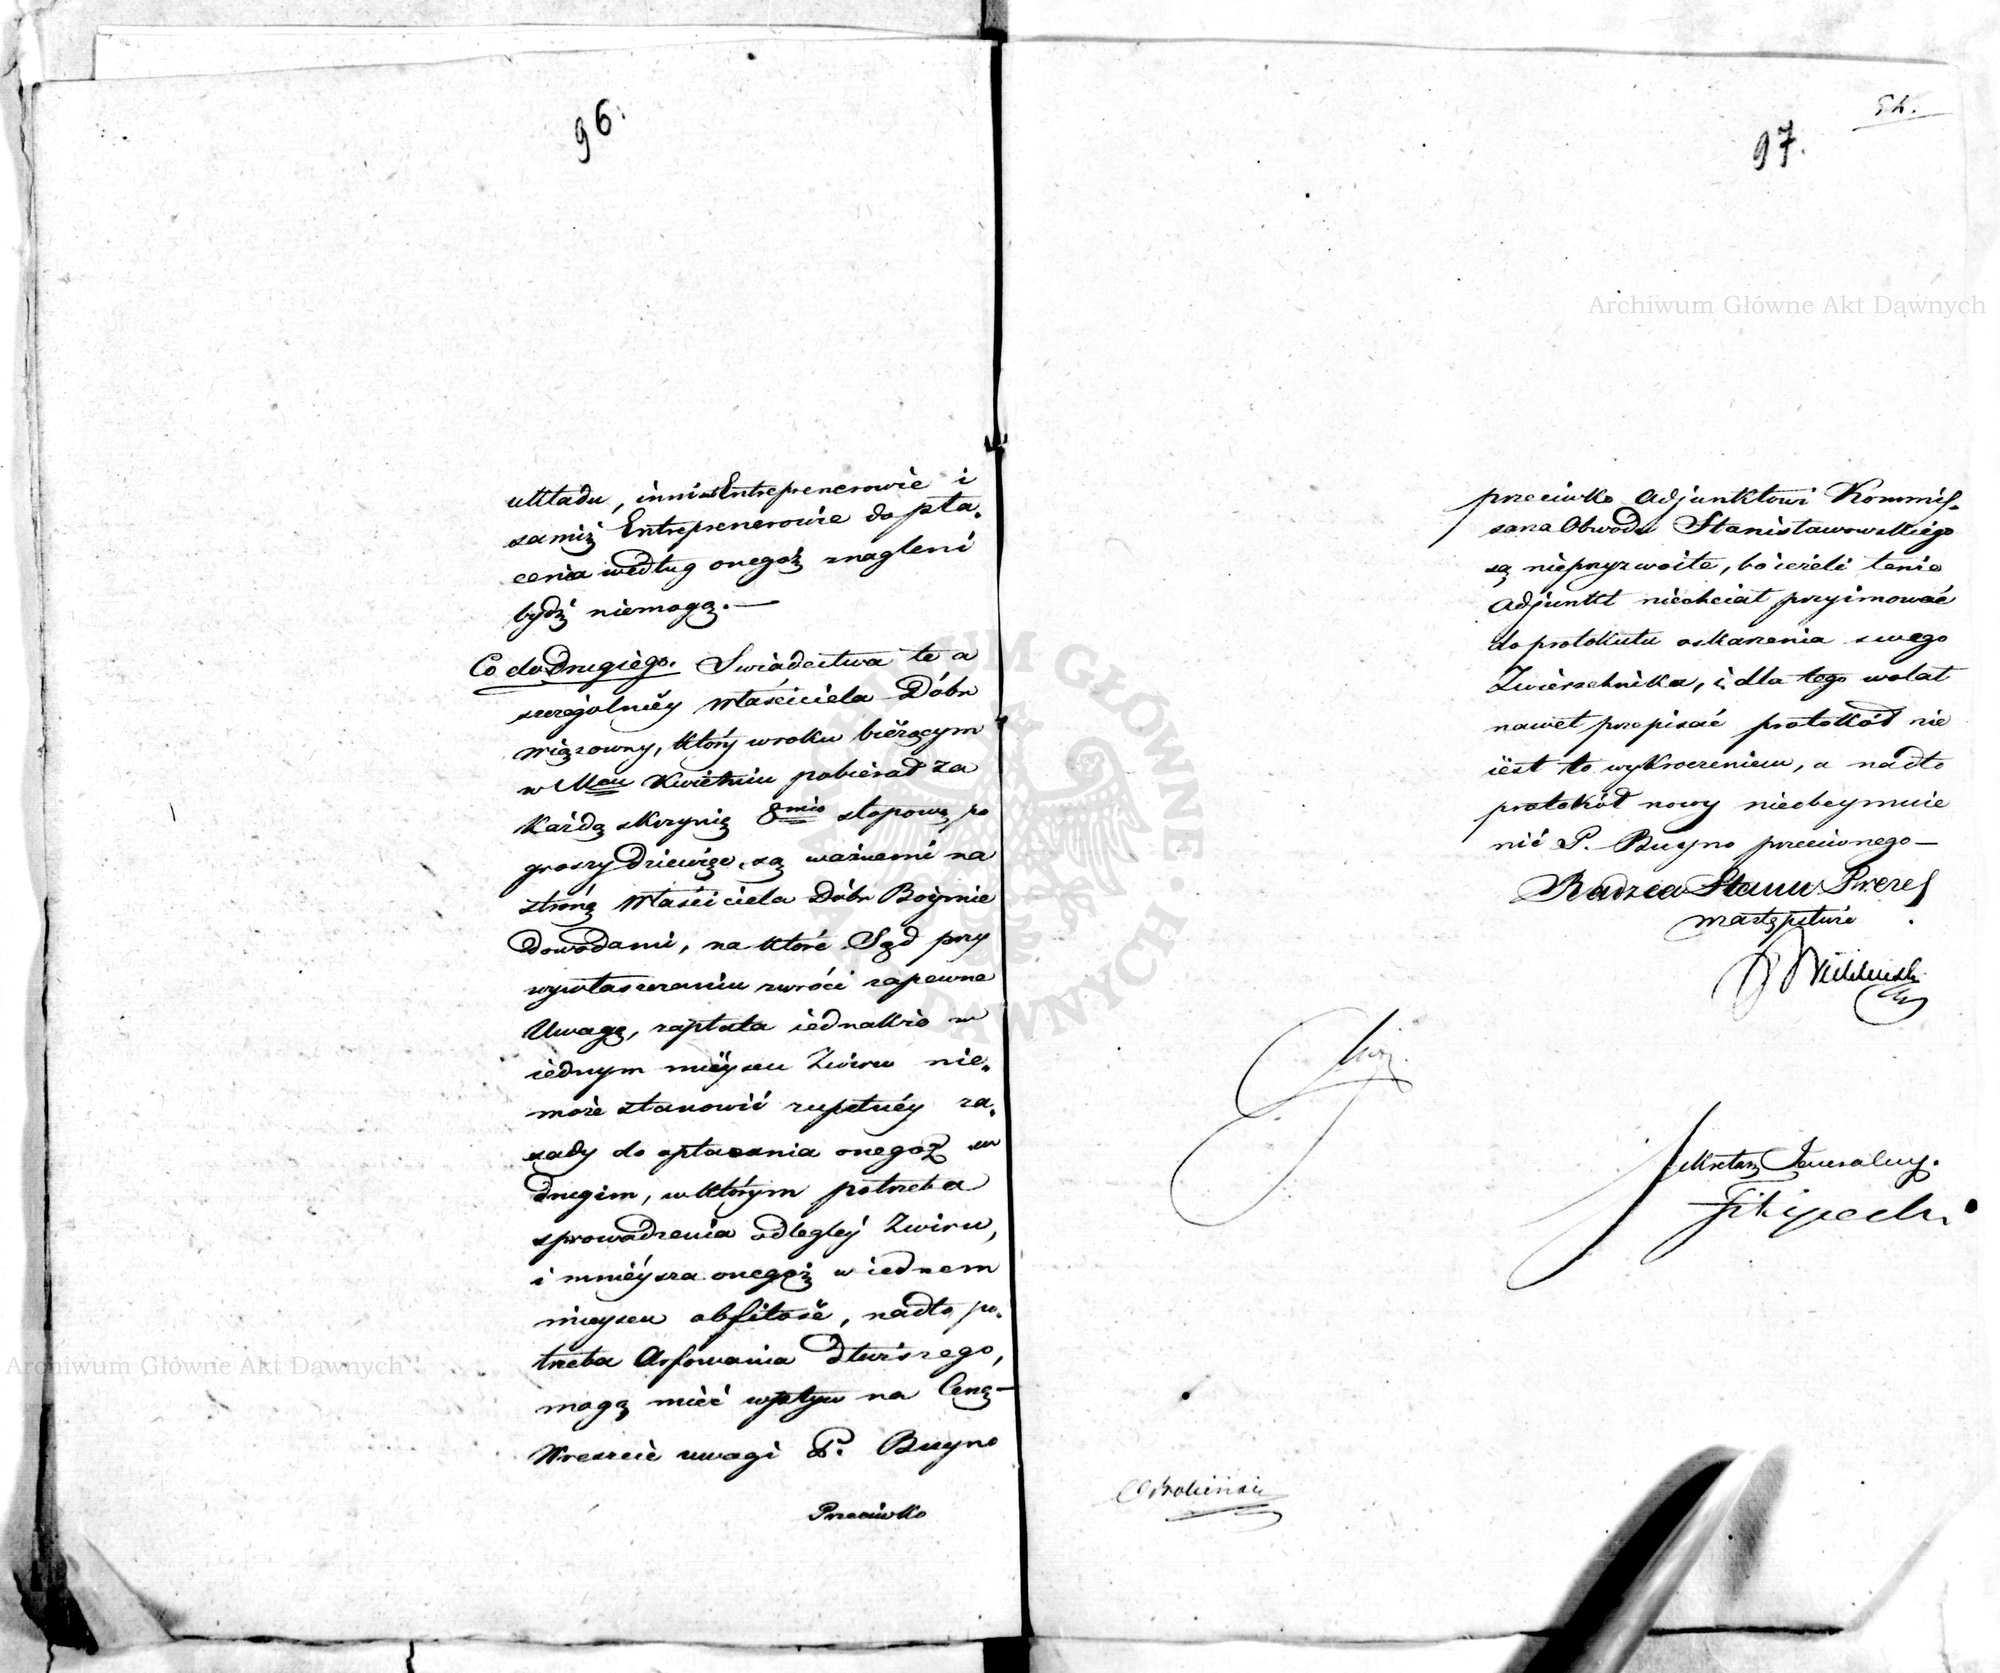 96.
układu, inni Entreprenerowie i
samiż Entreprenerowie do pła„
cenia według onegoż znagleni
bydź niemogą.—
Co do Drugiego. Swiadectwa te a
szczególniéy Właściciela Dóbr
Wiązowny, który w roku bieżącym
w Mcu Kwietniu pobierał za
każdą skrzynię 8mio stopową po
groszy Dziewięć, są ważnemi na
stronę Właściciela Dóbr Boiymie
dowodami, na które Sąd przy
wywłaszczeniu zwróci zapewne
Uwagę, zapłata iednakże w
iednym mieyscu Żwiru nie„
może stanowić zupełnéy za„
sady do opłacania onegoż w
drugim, w którym potrzeba
sprowadzenia odległey Żwiru,
i mniéysza onegoż w iednem
mieyscu obfitość, nadto po„
trzeba Arfowania dłuższego,
mogą mieć wpływ na Cenę—
Wreszcie uwagi P. Buyno
Przeciwko
54.
97.
przeciwko Adjunktowi Kommis„
sarza Obwodu Stanisławowskiego
są nieprzyzwoite, bo ieżeli tenże
Adjunkt niechciał przyimować
do protokułu oskarżenia swego
Zwierzchnika, i dla tego wolał
nawet przepisać protokół nie
iest to wykroczeniem, a nadto
protokół nowy nieobeymuie
nic P. Buyno przeciwnego—
Radzca Stanu Prezes
w zastępstwie
Sekretarz Jeneralny.
Filipecki
Archiwum Główne Akt Dawnych
Archiwum Główne Akt Dawnych
ARCHIWUM GŁÓWNE AKT DAWNYCH